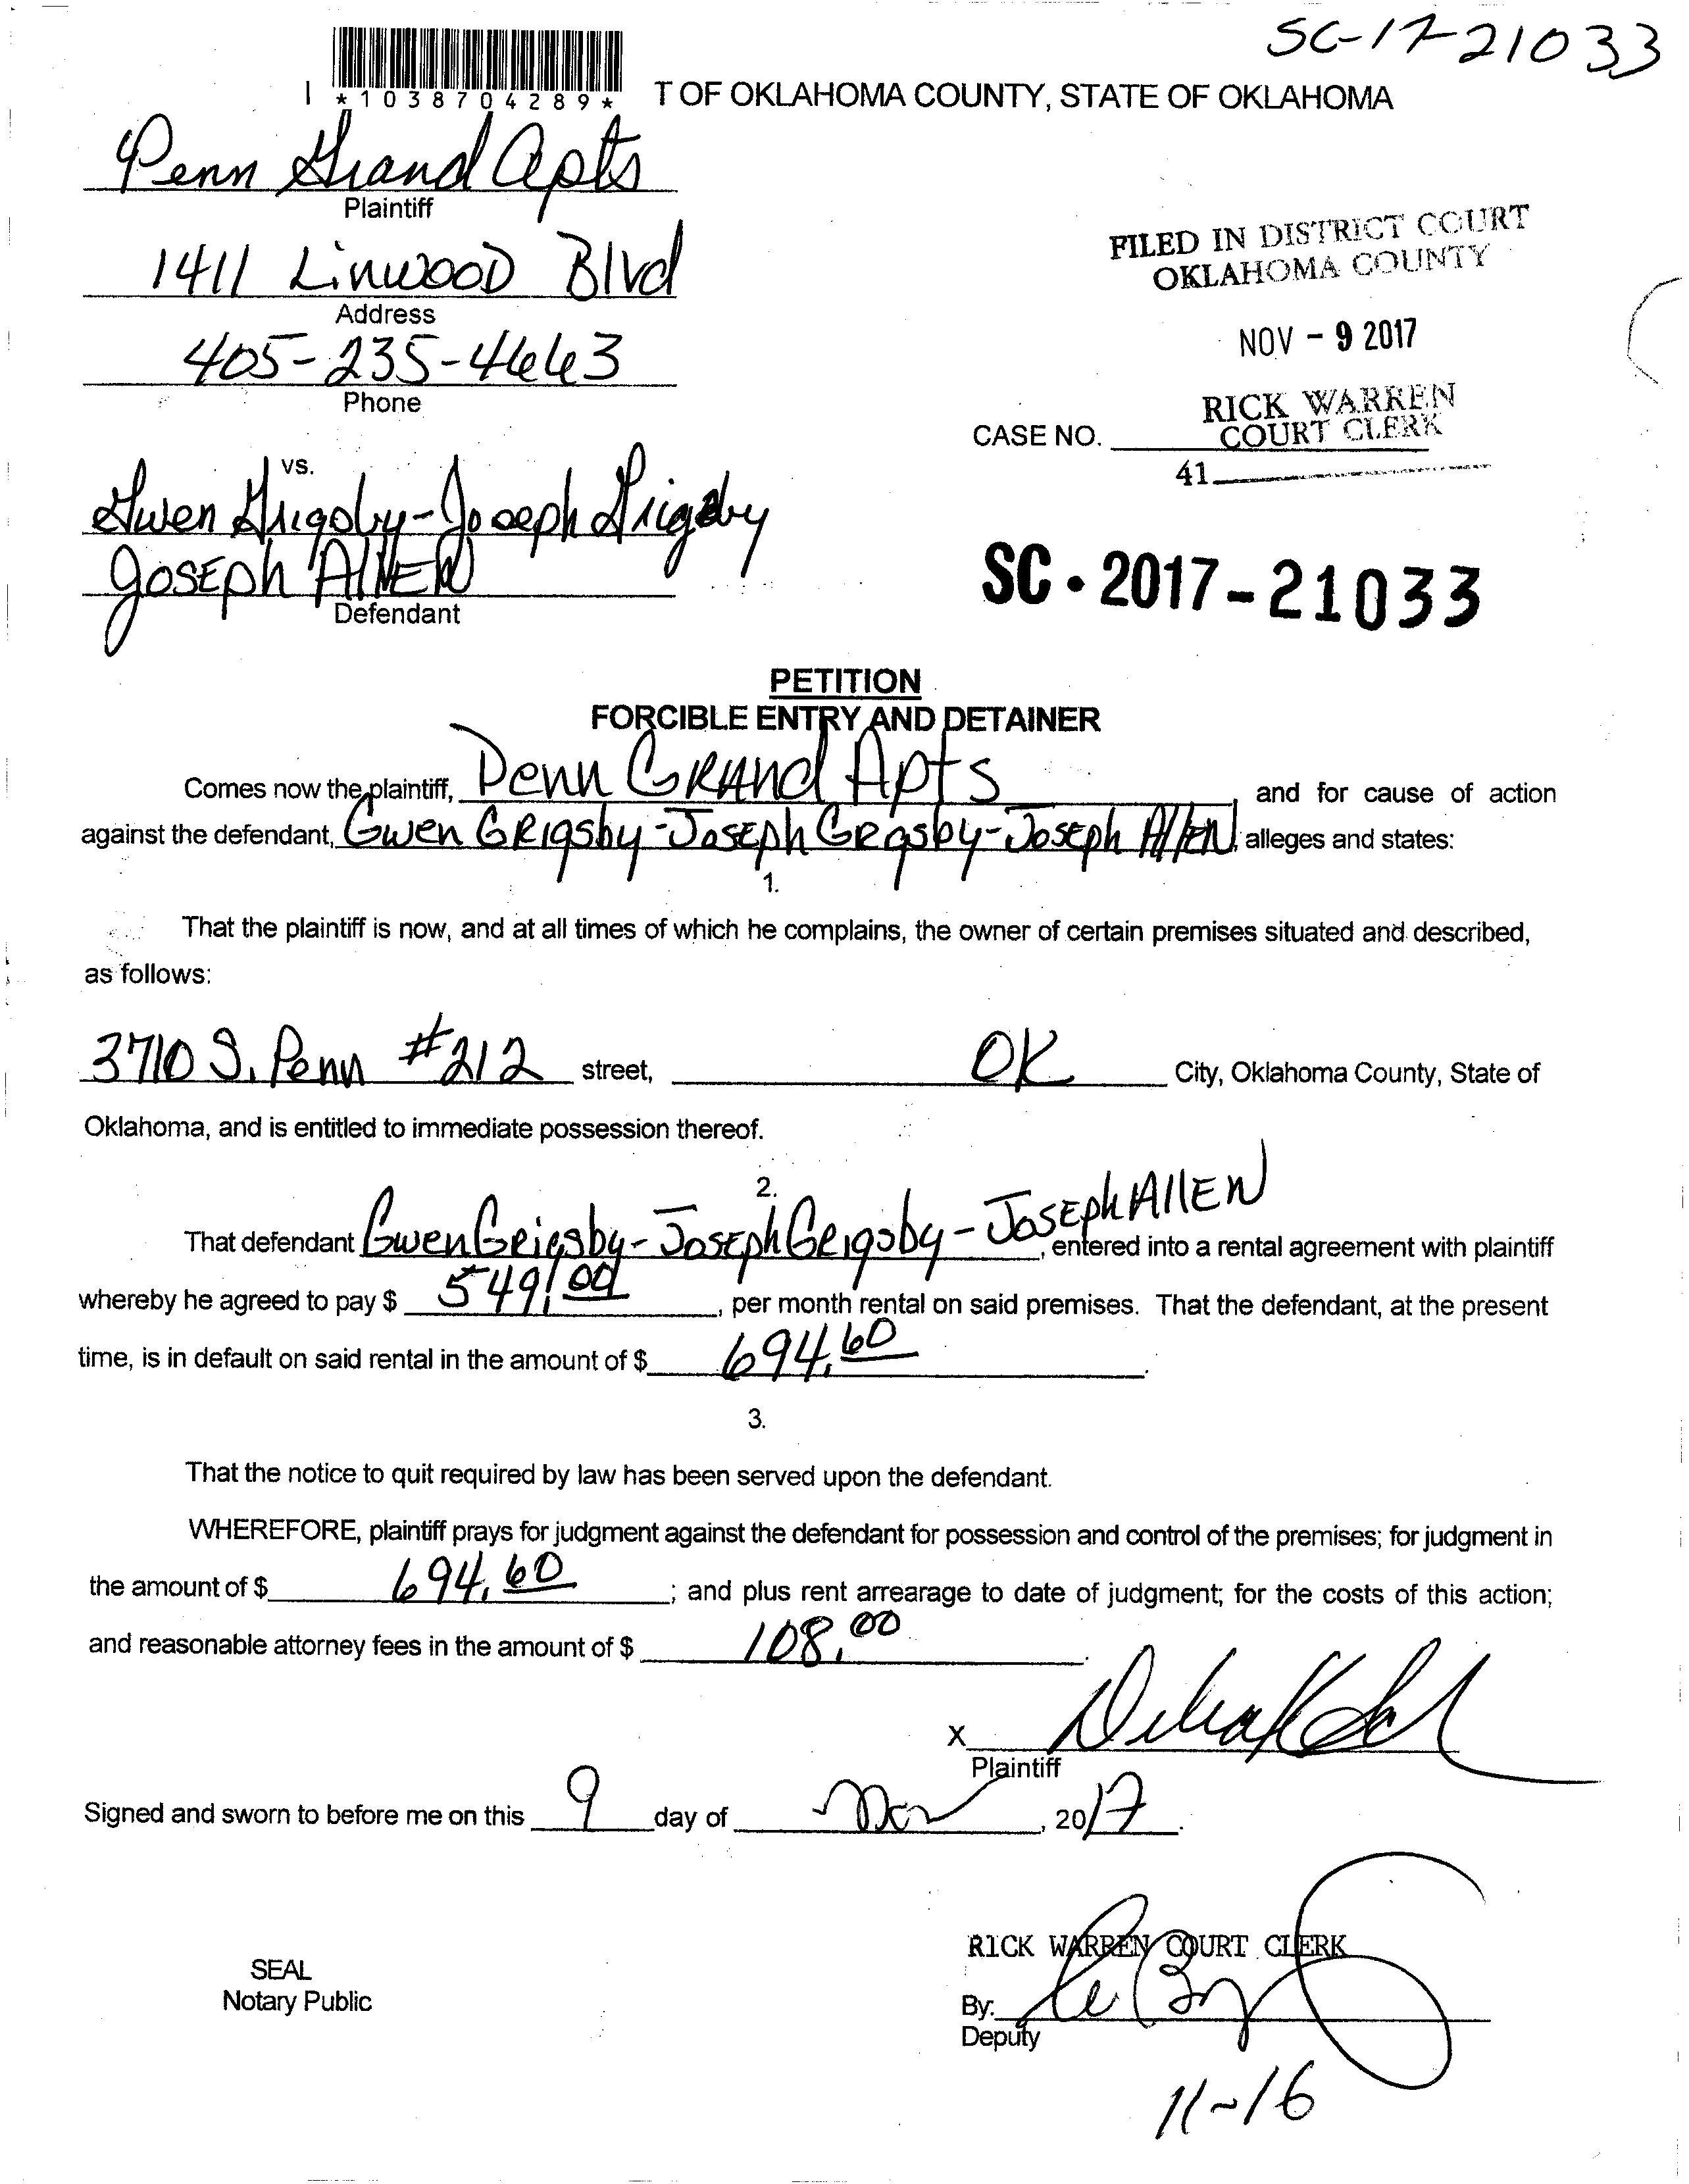 SC-17-21033
*1038704289*
T OF OKLAHOMA COUNTY, STATE OF OKLAHOMA
Penn Grand Apts
Plaintiff
1411 Linwood Blvd
Address
405-235-4663
Phone
FILED IN DISTRICT COURT
OKLAHOMA COUNTY
NOV - 9 2017
RICK WARREN
COURT CLERK
CASE NO.
41
vs.
Gwen Grigsby-Joseph Grigsby
Joseph Allen
Defendant
SC • 2017-21033
PETITION
FORCIBLE ENTRY AND DETAINER
Comes now the plaintiff, Penn Grand Apts and for cause of action
against the defendant, Gwen Grigsby-Joseph Grgsby-Joseph Allen, alleges and states:
1.
That the plaintiff is now, and at all times of which he complains, the owner of certain premises situated and described,
as follows:
3710 S. Penn #212 street, OK City, Oklahoma County, State of
Oklahoma, and is entitled to immediate possession thereof.
2.
That defendant Gwen Grigsby-Joseph Grigsby-Joseph Allen, entered into a rental agreement with plaintiff
whereby he agreed to pay $ 549.00, per month rental on said premises. That the defendant, at the present
time, is in default on said rental in the amount of $ 694.60.
3.
That the notice to quit required by law has been served upon the defendant.
WHEREFORE, plaintiff prays for judgment against the defendant for possession and control of the premises; for judgment in
the amount of $ 694.60; and plus rent arrearage to date of judgment; for the costs of this action;
and reasonable attorney fees in the amount of $ 108.00.
X
Plaintiff
Signed and sworn to before me on this 9 day of Nov, 2017.
RICK WARREN COURT CLERK
SEAL
Notary Public
By:
Deputy
11-16